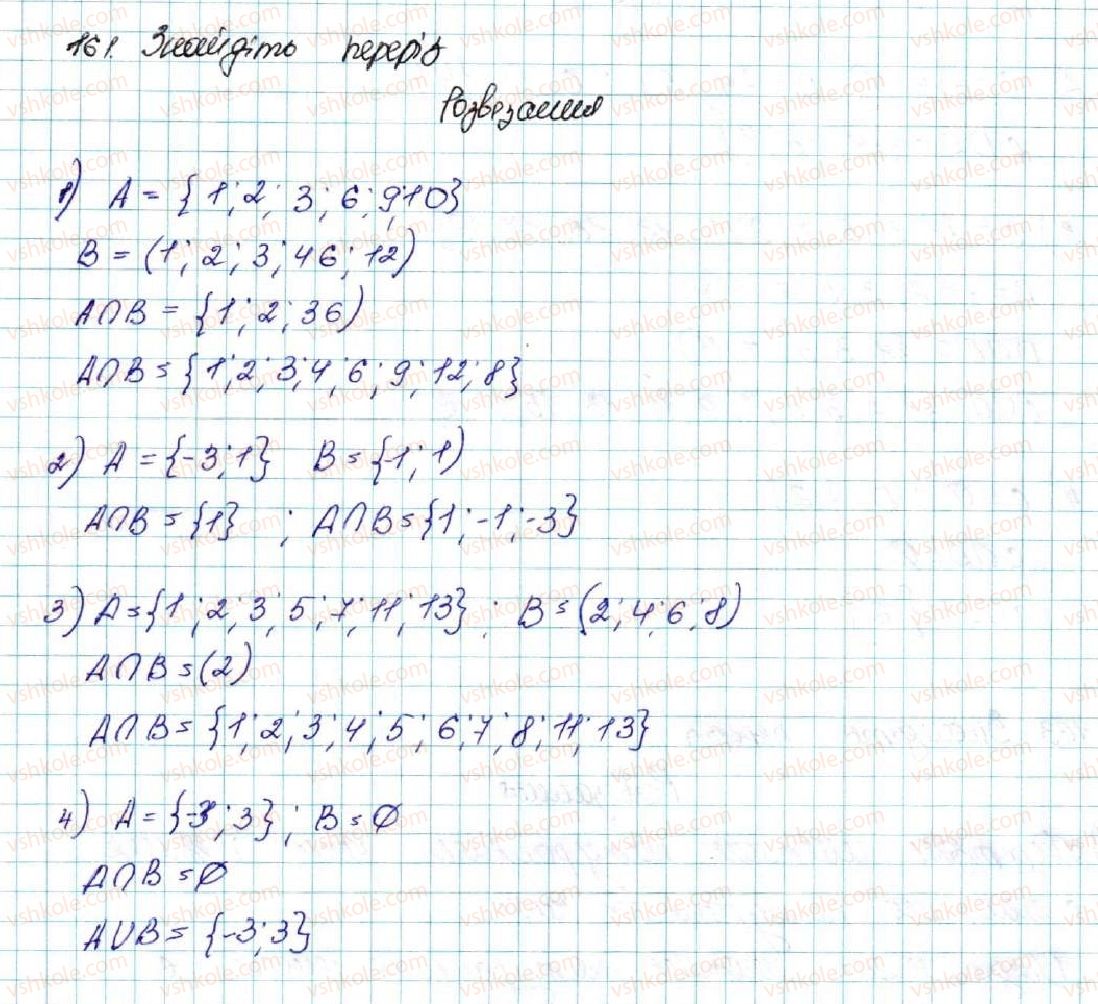 161. Знайдіть переріз
Розвезання
1) A = {1; 2; 3; 6; 9; 10}
B = (1; 2; 3; 46; 12)
A∩B = {1; 2; 36)
A∩B = {1; 2; 3; 4; 6; 9; 12; 8}
2) A = {-3; 1} B = {-1; 1)
A∩B = {1} ; A∩B = {1; -1; -3}
3) A = {1; 2; 3; 5; 7; 11; 13} ; B = (2; 4; 6; 8)
A∩B = (2)
A∩B = {1; 2; 3; 4; 5; 6; 7; 8; 11; 13}
4) A = {-3; 3} ; B = ∅
A∩B = ∅
A∪B = {-3; 3}